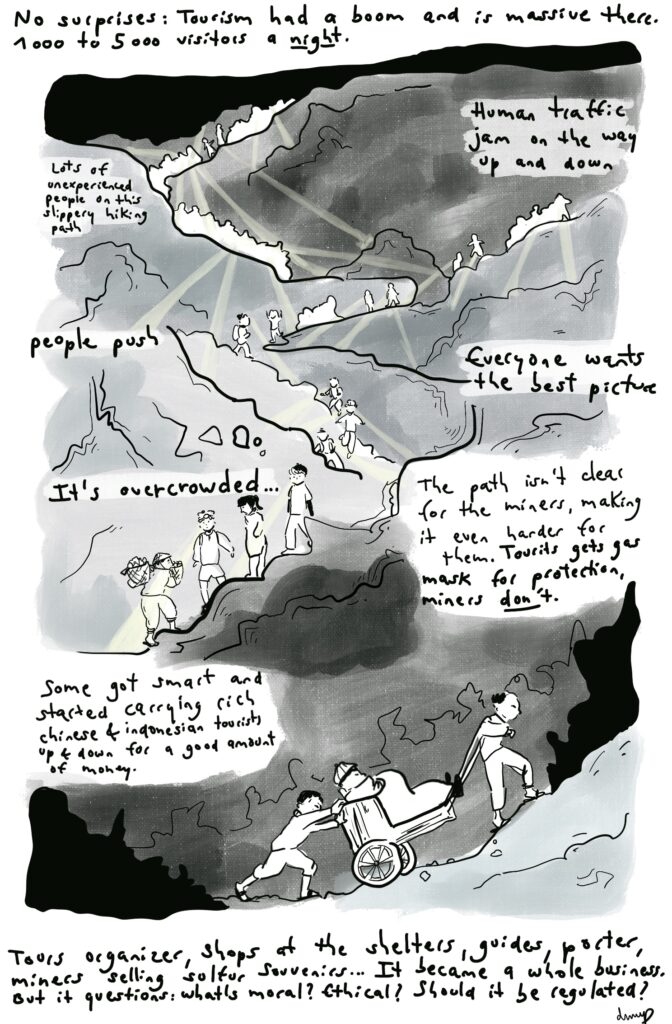 No surprises: Tourism had a boom and is massive there.
1000 to 5000 visitors a night.
Human traffic
jam on the way
up and down
Lots of
unexperienced
people on this
slippery hiking
path
people push
Everyone wants
the best picture
It's overcrowded...
The path isn't clear
for the miners, making
it even harder for
them. Tourits gets gas
mask for protection,
miners don't.
Some got smart and
started carrying rich
chinese & indonesian tourists
up & down for a good amount
of money.
Tours organizer, shops at the shelters, guides, porter,
miners selling sulfur souvenirs... It became a whole business.
But it questions: whatls moral? Ethical? Should it be regulated?